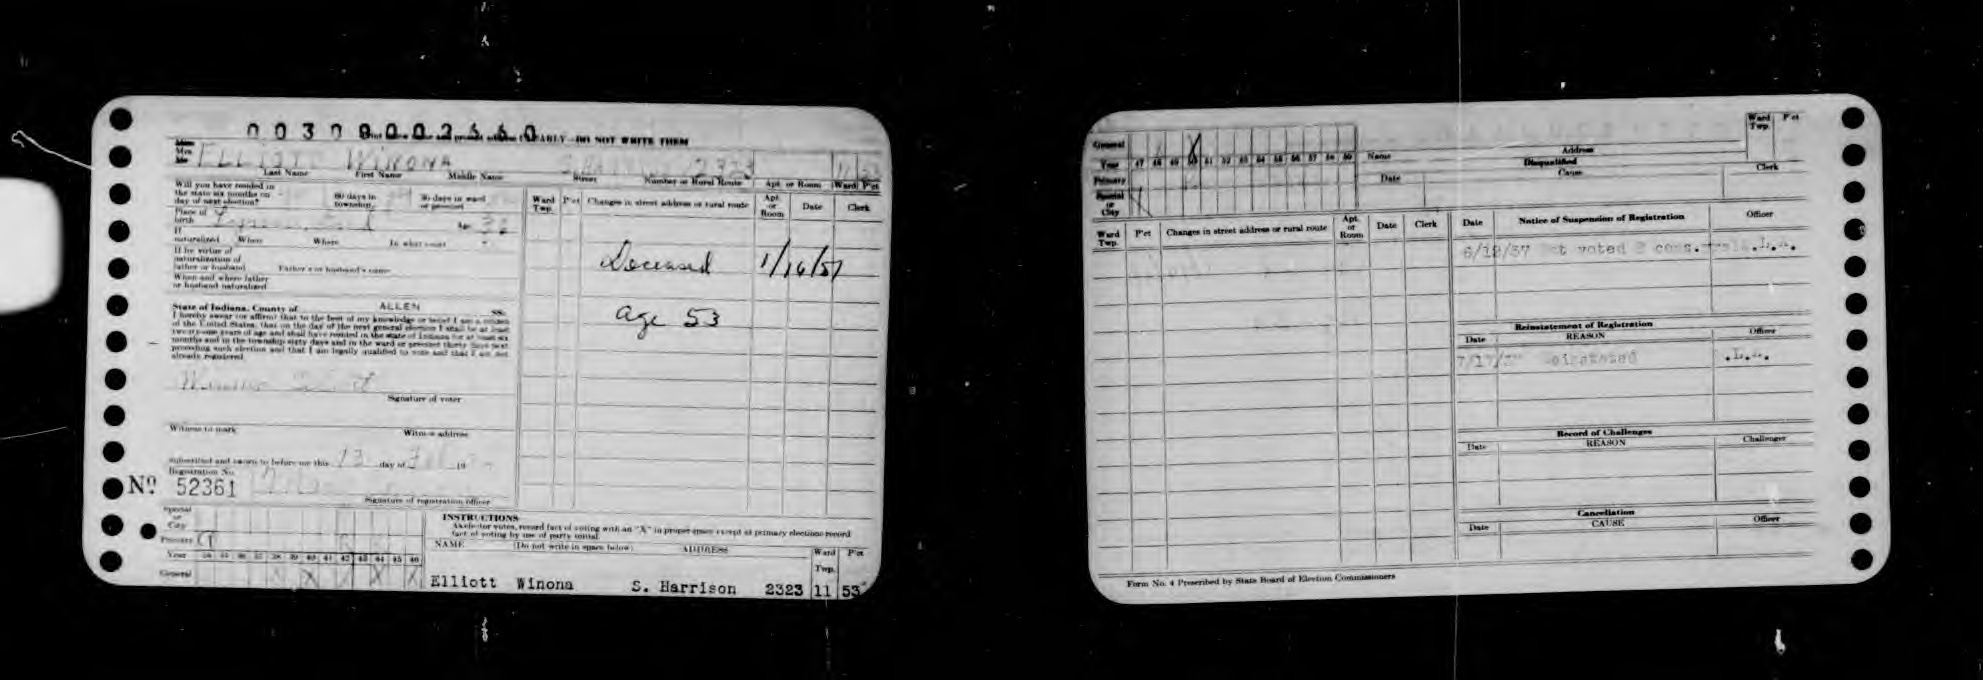 ARLY - DO NOT WRITE THEM
Mrs.
ELLIOTT WINONA 2323
Last Name First Name Middle Name Street Number or Rural Route Apt. or Room Ward P'ct
Will you have resided in
the state six months on
day of next election?
60 days in
township
30 days in ward
or precinct
Place of
birth
Age
If
naturalized When Where In what court
If by virtue of
naturalization of
father or husband Father's or husband's name
When and where father
or husband naturalized
State of Indiana, County of ALLEN ss.
I hereby swear (or affirm) that to the best of my knowledge or belief I am a citizen
of the United States, that on the day of the next general election I shall be at least
twenty-one years of age and shall have resided in the state of Indiana for at least six
months and in the township sixty days and in the ward or precinct thirty days next
preceding such election and that I am legally qualified to vote and that I am not
already registered.
Winona Elliott
Signature of voter
Witness to mark Witness address
Subscribed and sworn to before me this 13 day of 19
Registration No.
Nº 52361
Signature of registration officer
Ward
Twp. P'ct Changes in street address or rural route Apt.
or
Room Date Clerk
Deceased 1/16/57
age 53
Special
or
City
Primary
Year 34 35 36 37 38 39 40 41 42 43 44 45 46
General X X X
INSTRUCTIONS
As elector votes, record fact of voting with an "X" in proper space except at primary elections record
fact of voting by use of party initial.
NAME (Do not write in space below) ADDRESS Ward
Twp. P'ct
Elliott Winona S. Harrison 2323 11 53
General X
Year 47 48 49 50 51 52 53 54 55 56 57 58 59
Primary
Special
or
City
Name Address Ward
Twp. P'ct
Disqualified
Date Cause Clerk
Ward
Twp. P'ct Changes in street address or rural route Apt.
or
Room Date Clerk
Date Notice of Suspension of Registration Officer
6/12/57 voted 2 cons. L.A.
Reinstatement of Registration
Date REASON Officer
7/17/ einstated .L.A.
Record of Challenges
Date REASON Challenger
Cancellation
Date CAUSE Officer
Form No. 4 Prescribed by State Board of Election Commissioners